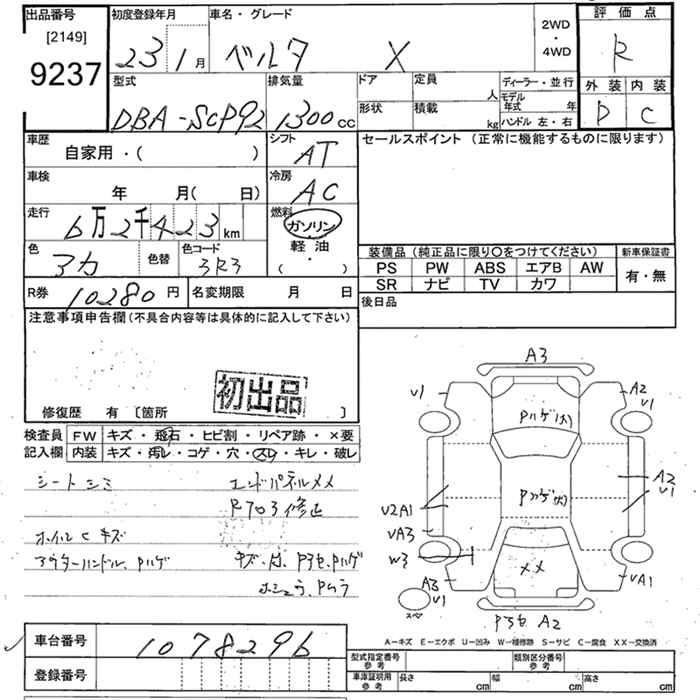 出品番号
[2149]
9237
初度登録年月
23 1 月
車名・グレード
ベルタ X
2WD
・
4WD
評価点
R
外装 内装
D C
型式
DBA-SCP92
排気量
1300 cc
ドア
定員
人
形状
積載
kg
ディーラー・並行
モデル年式 年
ハンドル 左・右
車歴
自家用・( )
シフト
AT
セールスポイント (正常に機能するものに限ります)
車検
年 月( 日)
冷房
AC
走行
6万2千423 km
燃料
ガソリン
軽油
( ・ )
色
アカ
色替
色コード
3R3
装備品 (純正品に限り○をつけてください)
新車保証書
PS PW ABS エアB AW
SR ナビ TV カワ
有・無
R券 10280 円
名変期限 月 日
後日品
注意事項申告欄(不具合内容等は具体的に記入して下さい)
初出品
修復歴 有 [箇所 ]
検査員 FW キズ・飛石・ヒビ割・リペア跡・×要
記入欄 内装 キズ・汚レ・コゲ・穴・スレ・キレ・破レ
シートシミ
エンドパネルメメ
ホイルCキズ
アウターハンドル、Pハゲ
A3
V1
A2
V1
Pハゲ(大)
Pハゲ(大)
A2
V1
V2A1
VA3
W3
××
A3
V1
VA1
スペ
A2
A-キズ E-エクボ U-凹み W-補修跡 S-サビ C-腐食 XX-交換済
車台番号 1078296
登録番号
型式指定番号
参考
類別区分番号
参考
車庫証明用
参考
長さ cm 幅 cm 高さ cm